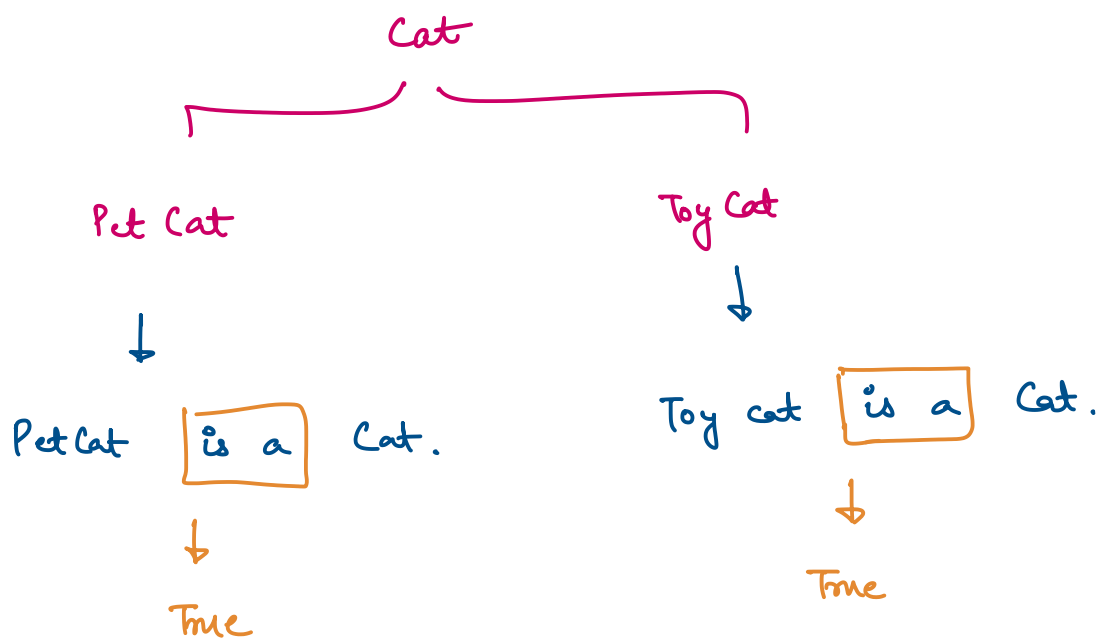 Cat
Pet Cat
Toy Cat
Pet Cat is a Cat.
Toy cat is a Cat.
True
True